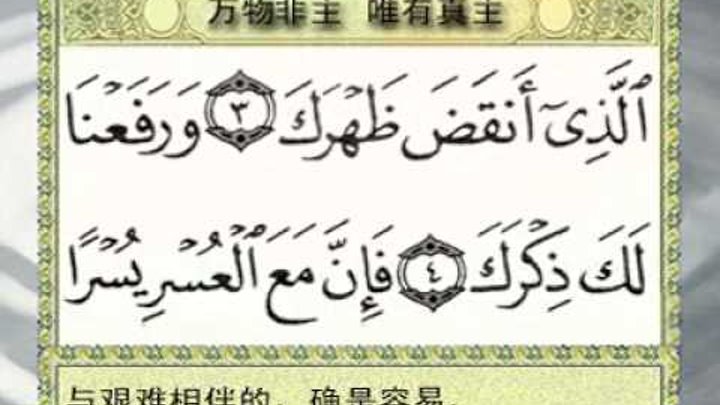 万物非主 唯有真主
ٱلَّذِىٓ أَنقَضَ ظَهْرَكَ ٣ وَرَفَعْنَا
لَكَ ذِكْرَكَ ٤ فَإِنَّ مَعَ ٱلْعُسْرِ يُسْرًا
与艰难相伴的，确是容易，